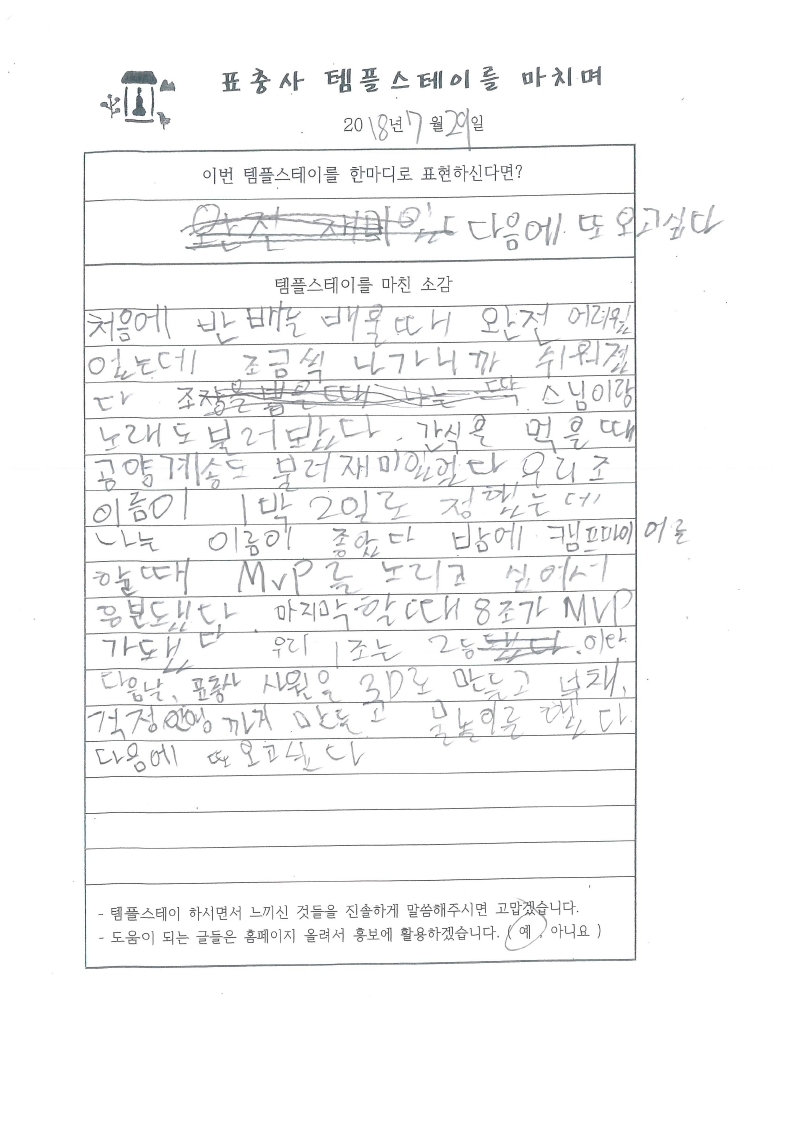 표충사 템플스테이를 마치며
2018년 7월 29일
이번 템플스테이를 한마디로 표현하신다면?
완전 재미있는 다음에 또 오고싶다
템플스테이를 마친 소감
처음에 반배는 배울때 완전 어려웠
었는데 조금씩 나가니까 쉬워졌
다 조장을 뽑을때 나는 스님이랑
노래도 불러봤다. 간식을 먹을때
공양게송도 불러 재미있었다 우리조
이름이 1박 2일로 정했는데
나는 이름이 좋았다 밤에 캠프파이어를
할때 MVP를 노리고 싶어서
흥분도됐다. 마지막할때 8조가 MVP
가됐다 우리 1조는 2등됐다.
다음날, 표충사 사원을 3D로 만들고 부채,
걱정인형 까지 만들고 물놀이를 했다
다음에 또 오고싶다
- 템플스테이 하시면서 느끼신 것들을 진솔하게 말씀해주시면 고맙겠습니다.
- 도움이 되는 글들은 홈페이지 올려서 홍보에 활용하겠습니다. ( 예 , 아니요 )